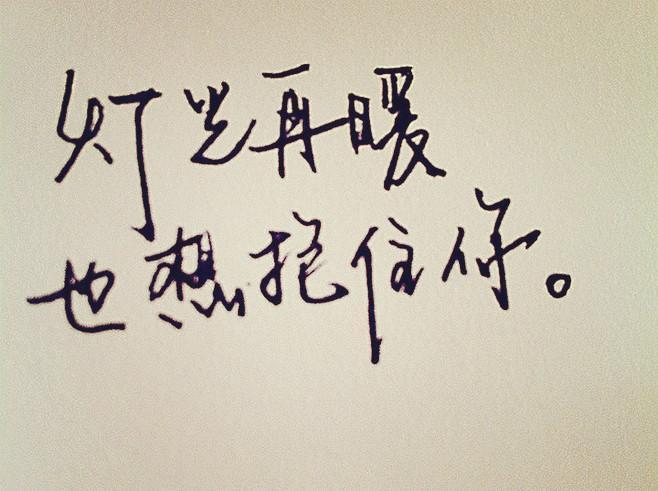 灯光再暖
也想抱住你。